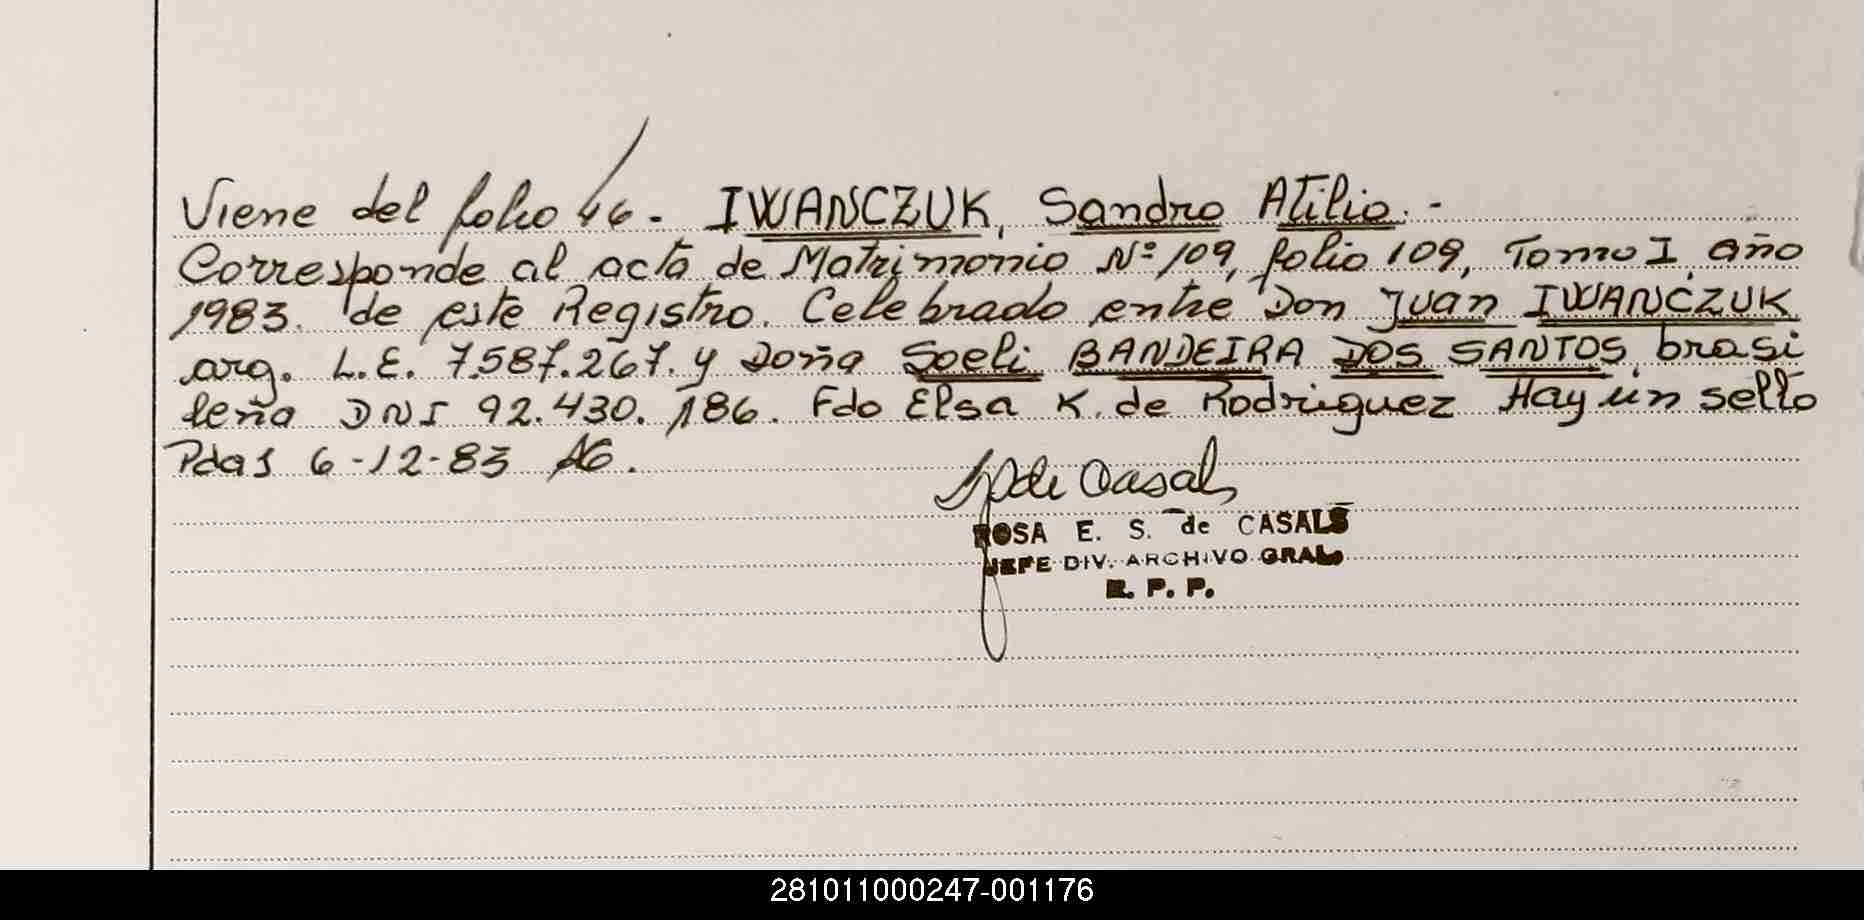 Viene del folio 46 - IWANCZUK, Sandro Atilio. -
Corresponde al acta de Matrimonio Nº 109, folio 109, Tomo I, año
1983. de este Registro. Celebrado entre Don Juan IWANCZUK
arg. L.E. 7.587.267. y Doña Soeli BANDEIRA DOS SANTOS brasi
leña DNI 92.430.186. Fdo Elsa K. de Rodriguez Hay un sello
Pdas 6-12-83 AG.
de Casals
ROSA E. S. de CASALS
JEFE DIV. ARCHIVO GRAL.
R. P. P.
281011000247-001176